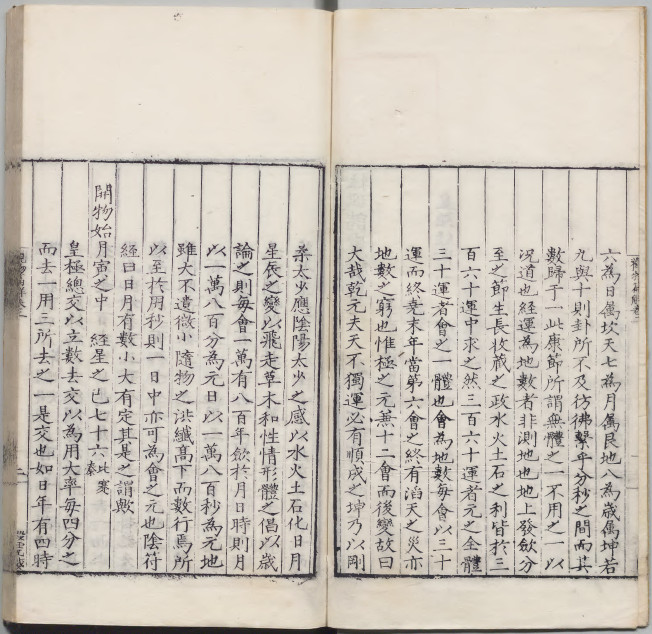 六為日萬坎天七為月萬艮地八為歲萬坤若
九與十則卦所不及彷彿繫乎分秒之間而其
數歸于一此康節所謂無體之一不用之一以
況道也経運為地數者非測地也地上發斂分
至之節生長收藏之政水火土石之利皆於三
百六十運中求之然三百六十運者元之全體
三十運者會之一體也會為地數每會以三十
運而終堯末年當第六會之終有滔天之災亦
地數之窮也惟極之元兼十二會而後變故曰
大哉乾元夫天不獨運必有順成之坤乃以剛
柔太少應陰陽太少之感以水火土石化日月
星辰之變以飛走草木和性情形體之倡以歲
論之則每會一萬有八百年斂於月日時則月
以一萬八百分為元日以一萬八百秒為元地
雖大不遺微小隨物之洪纖髙下而數行焉所
以至於用秒則一日中亦可為會之元也陰符
經曰日月有數小大有定其是之謂歟
開物始月寅之中 經星之巳七十六 此寒
皇極總交以立數去交以為用大率每四分之
而去一用三所去之一是交也如日年有四時